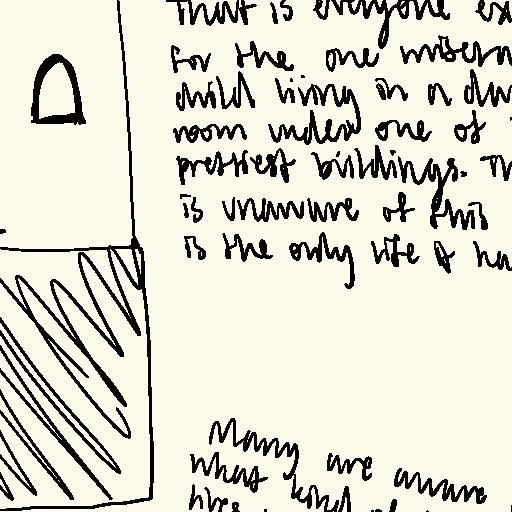 That is everyone ex
for the one misera
child living in a da
room under one of
prettiest buildings. Th
is unaware of this
is the only life it ha
Many are aware
what kind of
lives